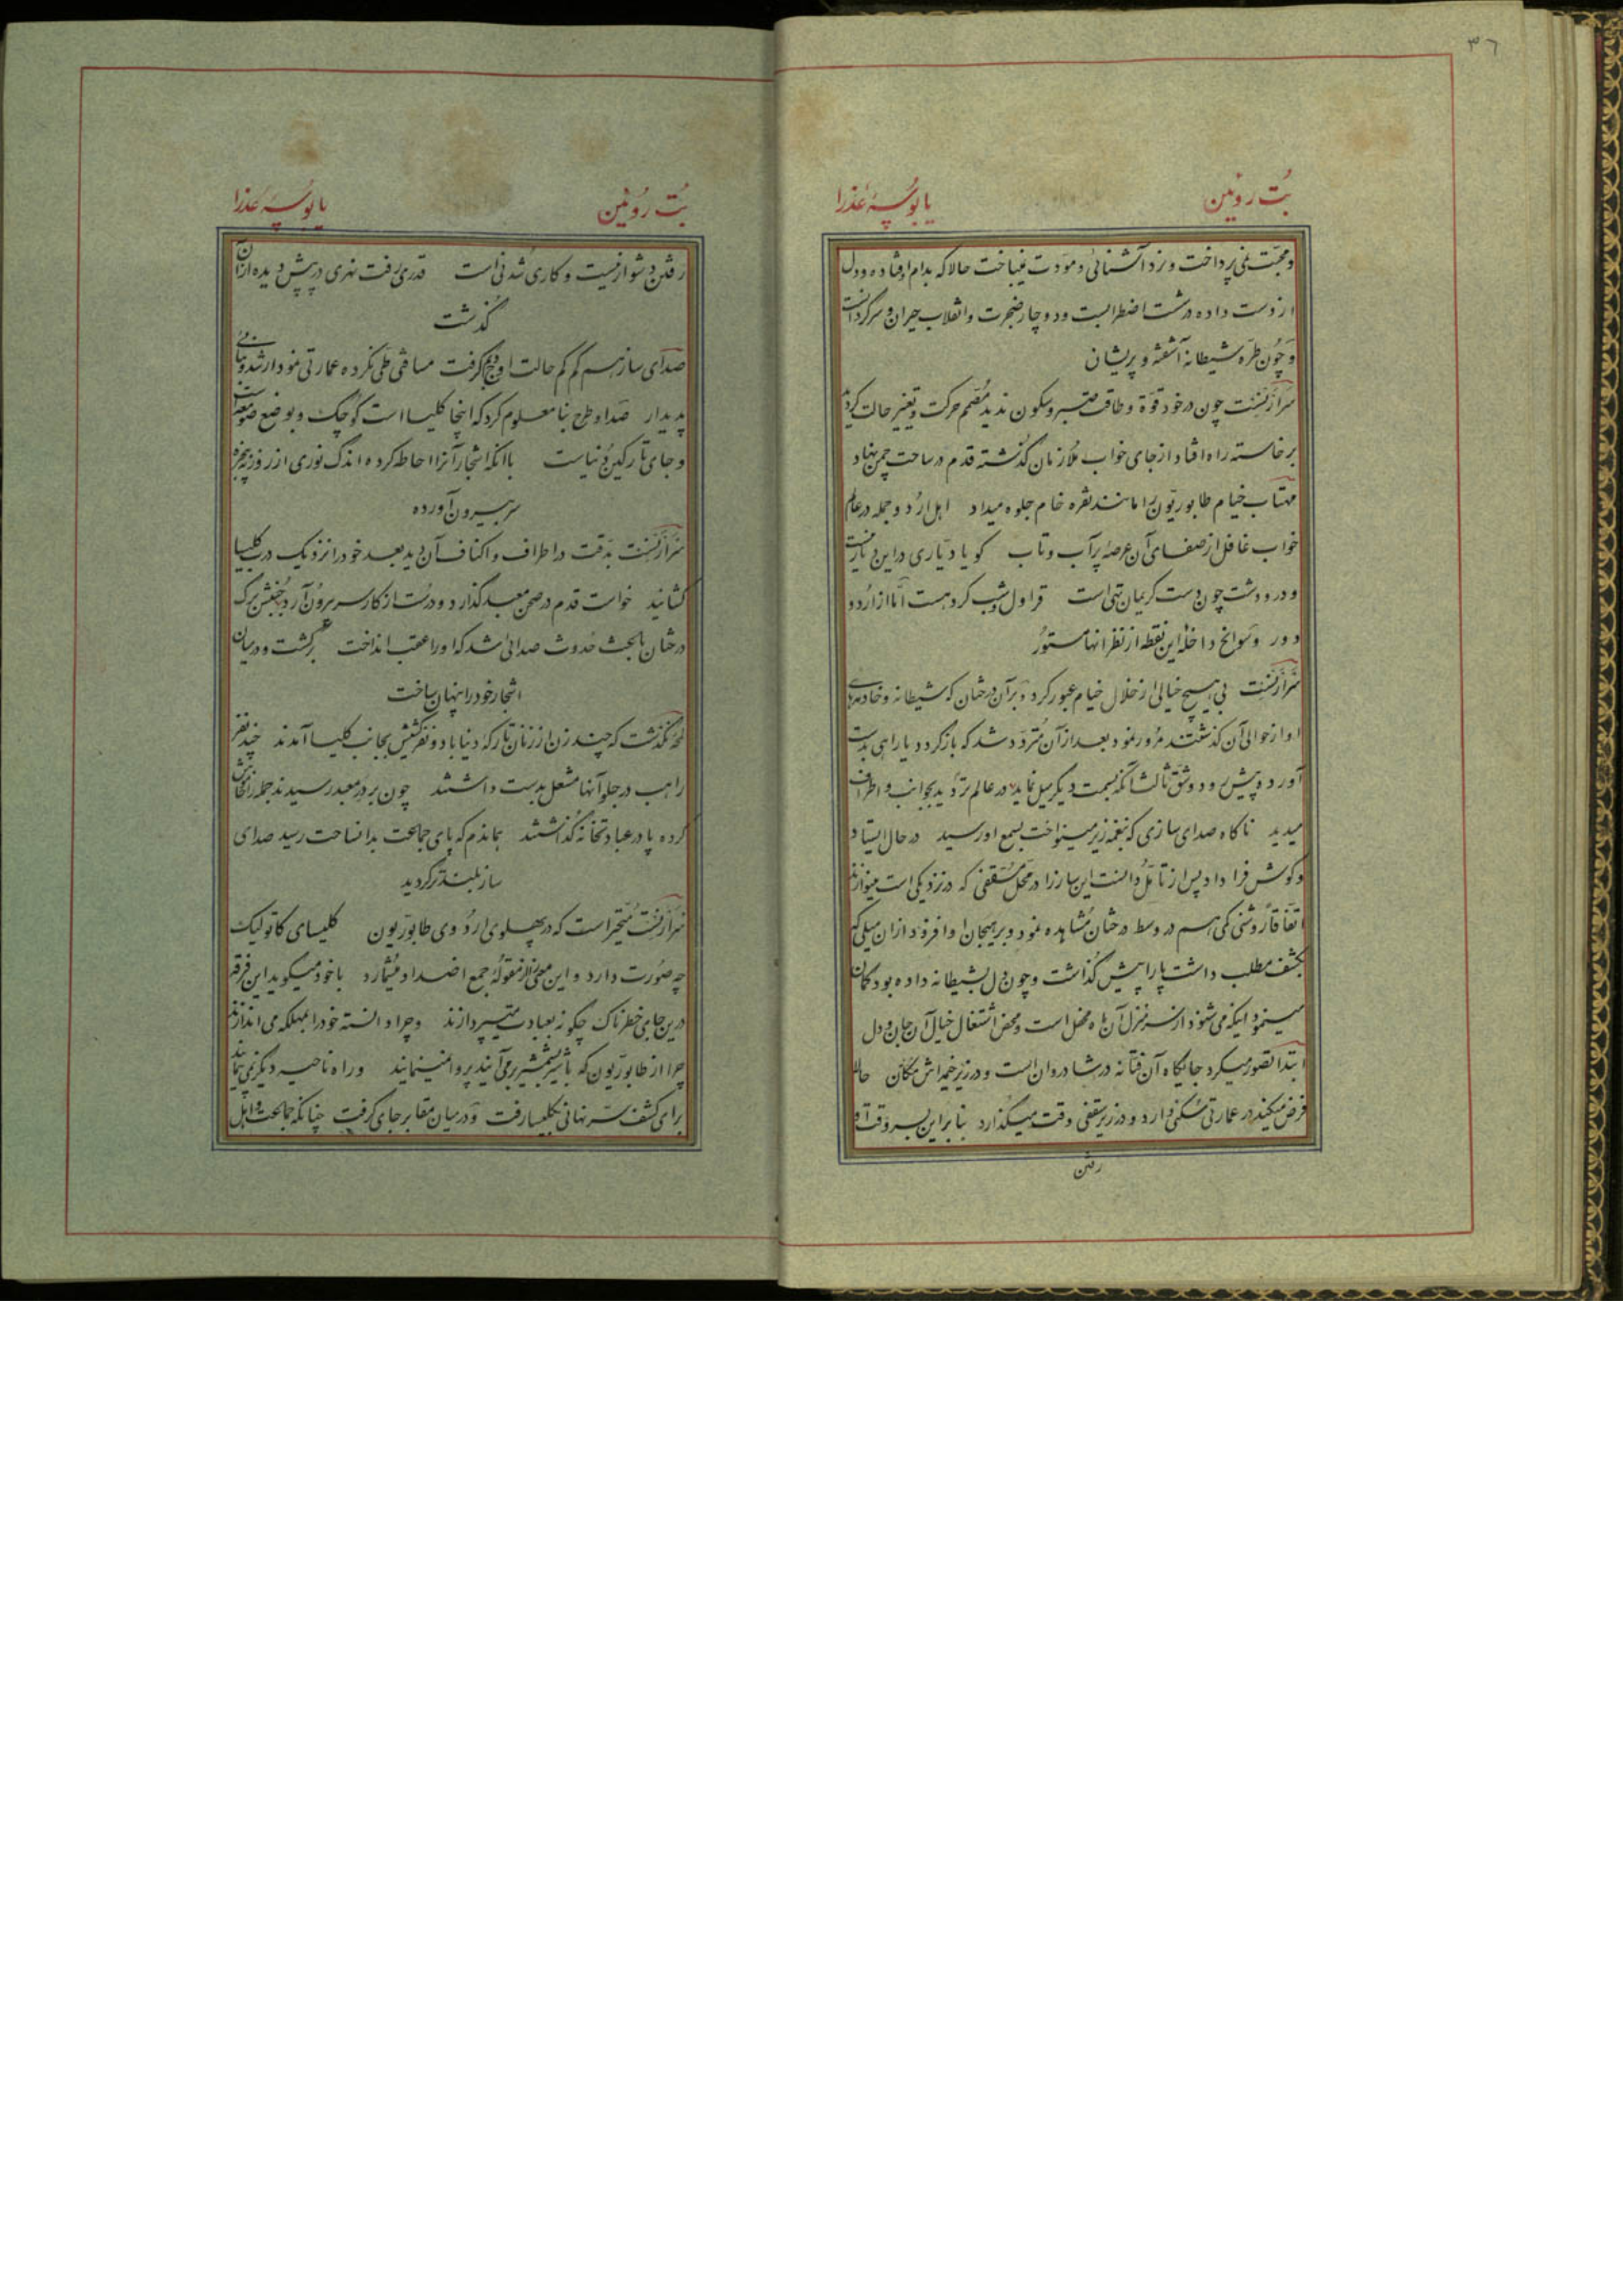 ٣٦
بُت روئین
یا بوسهٔ عذرا
و محبّت نمی پرداخت و نرد آشنائی و مودت نمیباخت حالا که بدام افتاده و دل
از دست داده در شت اضطرابست و دوچار ضجرت و انقلاب حیران و سرکردانست
و چون طرّه شیطانه آشفته و پریشان
سرآرنست چون در خود قوّة و طاقت صبر و سکون ندید مصمّم حرکت و تغییر حالت کردید
برخاسته راه افتاد از جای خواب ملازمان کذشته قدم در ساحت چمن نهاد
مهتاب خیام طابوریّون را مانند نقره خام جلوه میداد اهل اردو جمله در عالم
خواب غافل از صفای آن عرصهٔ پر آب و تاب کویا دیّاری در این دیار نیست
و در و دشت چون دست کریمان تهی است قراول شب کرد هست امّا از اردو
دور و سوانح داخلهٔ این نقطه از نظر انها مستور
سرآرنست بی هیچ خیالی از خلال خیام عبور کرد و بر آن درختان که شیطانه و خادمهای
او از حوالی آن کذشتند مرور نمود بعد از آن متردّد شد که باز کردد یا راهی بدست
آورد و پیش رود و شقّ ثالث آنکه بسمت دیکر میل نماید در عالم تردید بجوانب و اطراف
میدید ناکاه صدای سازی که بنغمه زیر مینواخت بسمع او رسید در حال ایستاد
و کوش فرا داد پس از تأمّل دانست این ساز را در محلّ مسقفی که در نزدیکی است مینوازند
اتّفاقاً روشنی کمی هم در وسط درختان مشاهده نمود و بر هیجان او افزود از ان میلی که
بکشف مطلب داشت پا را پیش کذاشت و چون دل بشیطانه داده بود کمان
مینمود اینکه می شنود از سر منزل آن ماه محفل است و محض اشتغال خیال آن جان و دل
ابتدا تصوّر میکرد جایکاه آن فتّانه در شادروان است و در زیر خیمه اش مکان حالا
فرض میکند در عمارتی مسکن دارد و در زیر سقفی وقت میکذارد بنابراین بسر وقت او
رفتن
بُت روئین
یا بوسهٔ عذرا
رفتن دشوار نیست و کاری شدنی است قدری رفت نهری در پیش دیده از ان
کذشت
صدای ساز هم کم کم حالت اوج کرفت مسافتی طی نکرده عمارتی نمودار شد و بنائی
پدیدار صدا و طرح بنا معلوم کرد که اینجا کلیسا است کوچک و بوضع صومعه
و جای تارکین دنیاست با انکه اشجار آنرا احاطه کرده اندک نوری از روزنه پنجره
سر بیرون آورده
سرآرنست بدقت در اطراف و اکناف آن دید بعد خود را نزدیک در کلیسا
کشانید خواست قدم در صحن معبد کذارد و درست از کار سر برون آرد جنبش برک
درختان باعث حدوث صدائی شد که او را عقب انداخت برکشت و در میان
اشجار خود را پنهان ساخت
لمحه نکذشت که چند زن از زنان تارکه دنیا با دو نفر کشیش بجانب کلیسا آمدند چند نفر
راهب در جلو آنها مشعل بدست داشتند چون بر در معبد رسیدند جمله را خاموش
کرده پا در عبادتخانه کذاشتند هماندم که پای جماعت بدانساحت رسید صدای
ساز بلندتر کردید
سرآرنست متحیّر است که در پهلوی اردوی طابوریّون کلیسای کاتولیک
چه صورت دارد و این معنی از مقوله جمع اضداد میشمارد با خود میکوید این فرقه
درین جای خطرناک چکونه بعبادت میپردازند و چرا دانسته خود را بمهلکه می اندازند
چرا از طابوریّون که با شیر بشمشیر برمی آیند پروا نمینمایند و راه ناحیه دیکر نمی پیمایند
برای کشف سرّ نهانی بکلیسا رفت و در میان مقابر جای کرفت چنانکه جماعت و اهل